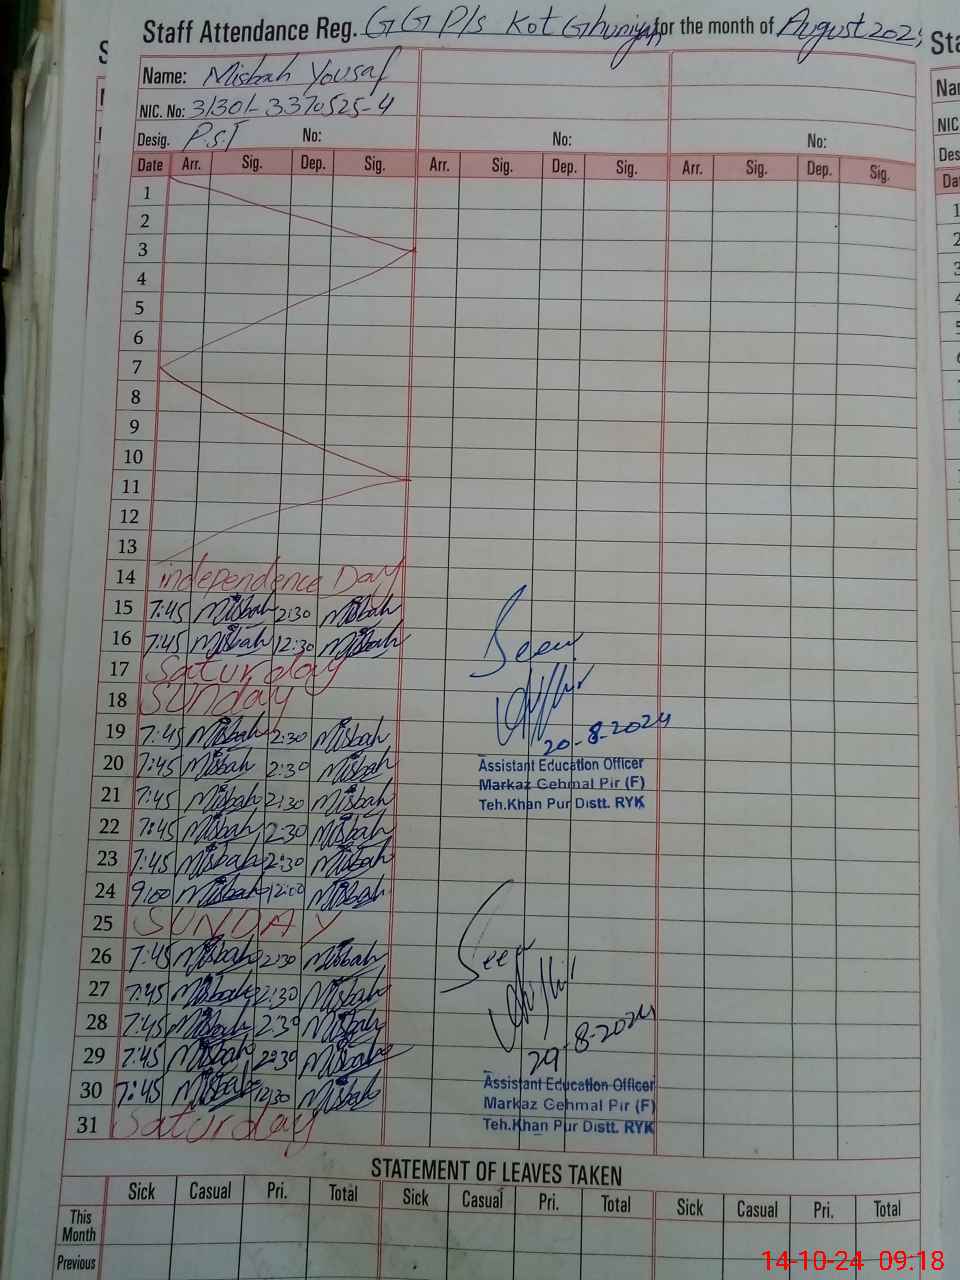 Staff Attendance Reg. GGP/s Kot Ghuniya for the month of August 202
Name: Misbah Yousaf
NIC. No: 31301-3370525-4
Desig. P.S.T No: No: No:
Date Arr. Sig. Dep. Sig. Arr. Sig. Dep. Sig. Arr. Sig. Dep. Sig.
1
2
3
4
5
6
7
8
9
10
11
12
13
14 independence Day
15 7:45 Misbah 2:30 Misbah
16 7:45 Misbah 12:30 Misbah
17 Saturday
18 SUnday
19 7:45 Misbah 2:30 Misbah
20 7:45 Misbah 2:30 Misbah
21 7:45 Misbah 2:30 Misbah
22 7:45 Misbah 2:30 Misbah
23 7:45 Misbah 2:30 Misbah
24 9:00 Misbah 12:00 Misbah
25 SUNDAY
26 7:45 Misbah 2:30 Misbah
27 7:45 Misbah 2:30 Misbah
28 7:45 Misbah 2:30 Misbah
29 7:45 Misbah 2:30 Misbah
30 7:45 Misbah 12:30 Misbah
31 Saturday
Seen
20-8-2024
Assistant Education Officer
Markaz Gehmal Pir (F)
Teh.Khan Pur Distt. RYK
Seen
29-8-2024
Assistant Education Officer
Markaz Gehmal Pir (F)
Teh.Khan Pur Distt. RYK
STATEMENT OF LEAVES TAKEN
Sick Casual Pri. Total Sick Casual Pri. Total Sick Casual Pri. Total
This
Month
Previous
14-10-24 09:18